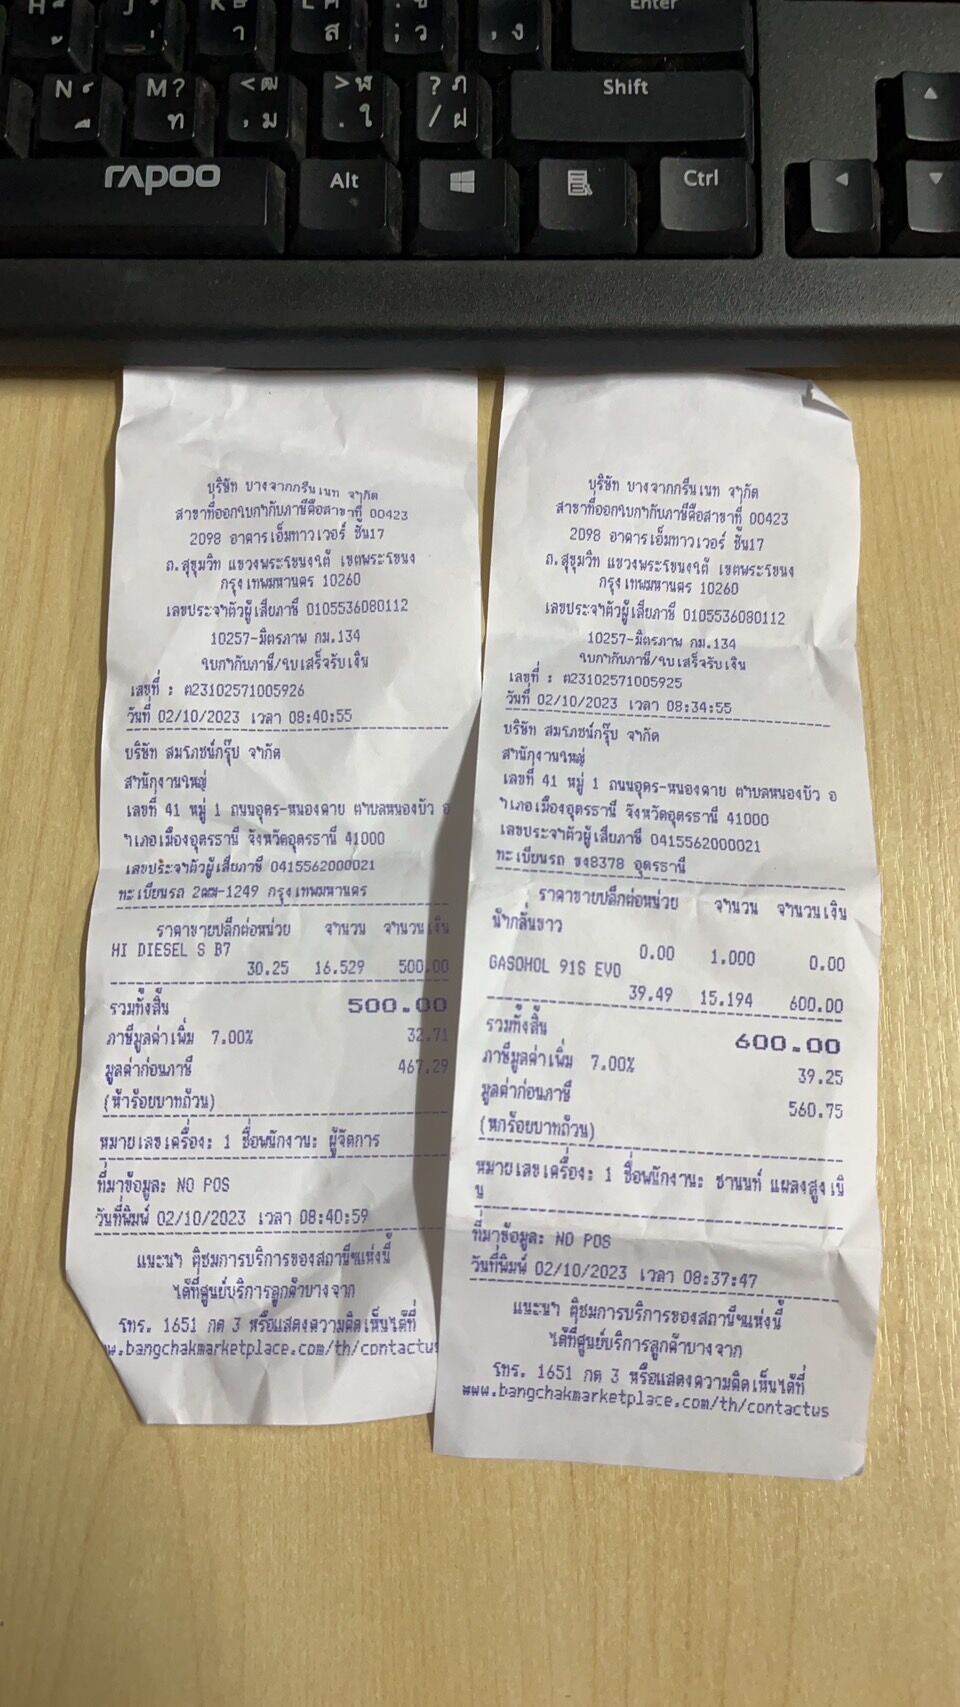 Enter
H
J
K
า
L
ส
; ว
, ง
N
M ?
ท
< ฒ
, ม
> ฬ
. ใ
? ฦ
/ ฝ
Shift
rapoo
Alt
Ctrl
บริษัท บางจากกรีนเนท จำกัด
สาขาที่ออกใบกำกับภาษีคือสาขาที่ 00423
2098 อาคารเอ็มทาวเวอร์ ชั้น17
ถ.สุขุมวิท แขวงพระโขนงใต้ เขตพระโขนง
กรุงเทพมหานคร 10260
เลขประจำตัวผู้เสียภาษี 0105536080112
10257-มิตรภาพ กม.134
ใบกำกับภาษี/ใบเสร็จรับเงิน
เลขที่ : ต23102571005926
วันที่ 02/10/2023 เวลา 08:40:55
บริษัท สมโภชน์กรุ๊ป จำกัด
สำนักงานใหญ่
เลขที่ 41 หมู่ 1 ถนนอุดร-หนองคาย ตำบลหนองบัว อ
ำเภอเมืองอุดรธานี จังหวัดอุดรธานี 41000
เลขประจำตัวผู้เสียภาษี 0415562000021
ทะเบียนรถ 2ฒฒ-1249 กรุงเทพมหานคร
ราคาขายปลีกต่อหน่วย จำนวน จำนวนเงิน
HI DIESEL S B7
30.25 16.529 500.00
รวมทั้งสิ้น 500.00
ภาษีมูลค่าเพิ่ม 7.00% 32.71
มูลค่าก่อนภาษี 467.29
(ห้าร้อยบาทถ้วน)
หมายเลขเครื่อง: 1 ชื่อพนักงาน: ผู้จัดการ
ที่มาข้อมูล: NO POS
วันที่พิมพ์ 02/10/2023 เวลา 08:40:59
แนะนำ ติชมการบริการของสถานีฯแห่งนี้
ได้ที่ศูนย์บริการลูกค้าบางจาก
โทร. 1651 กด 3 หรือแสดงความคิดเห็นได้ที่
w.bangchakmarketplace.com/th/contactus
บริษัท บางจากกรีนเนท จำกัด
สาขาที่ออกใบกำกับภาษีคือสาขาที่ 00423
2098 อาคารเอ็มทาวเวอร์ ชั้น17
ถ.สุขุมวิท แขวงพระโขนงใต้ เขตพระโขนง
กรุงเทพมหานคร 10260
เลขประจำตัวผู้เสียภาษี 0105536080112
10257-มิตรภาพ กม.134
ใบกำกับภาษี/ใบเสร็จรับเงิน
เลขที่ : ต23102571005925
วันที่ 02/10/2023 เวลา 08:34:55
บริษัท สมโภชน์กรุ๊ป จำกัด
สำนักงานใหญ่
เลขที่ 41 หมู่ 1 ถนนอุดร-หนองคาย ตำบลหนองบัว อ
ำเภอเมืองอุดรธานี จังหวัดอุดรธานี 41000
เลขประจำตัวผู้เสียภาษี 0415562000021
ทะเบียนรถ ขง8378 อุดรธานี
ราคาขายปลีกต่อหน่วย จำนวน จำนวนเงิน
น้ำกลั่นขาว
0.00 1.000 0.00
GASOHOL 91S EVO
39.49 15.194 600.00
รวมทั้งสิ้น 600.00
ภาษีมูลค่าเพิ่ม 7.00% 39.25
มูลค่าก่อนภาษี 560.75
(หกร้อยบาทถ้วน)
หมายเลขเครื่อง: 1 ชื่อพนักงาน: ชานนท์ แผลงสูงเนิ
น
ที่มาข้อมูล: NO POS
วันที่พิมพ์ 02/10/2023 เวลา 08:37:47
แนะนำ ติชมการบริการของสถานีฯแห่งนี้
ได้ที่ศูนย์บริการลูกค้าบางจาก
โทร. 1651 กด 3 หรือแสดงความคิดเห็นได้ที่
www.bangchakmarketplace.com/th/contactus